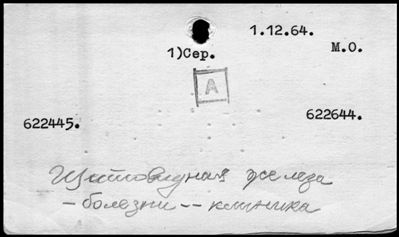 1.12.64.
1)Сер.
М.О.
А
622445.
622644.
Щитовидная железа
– болезни -- клиника